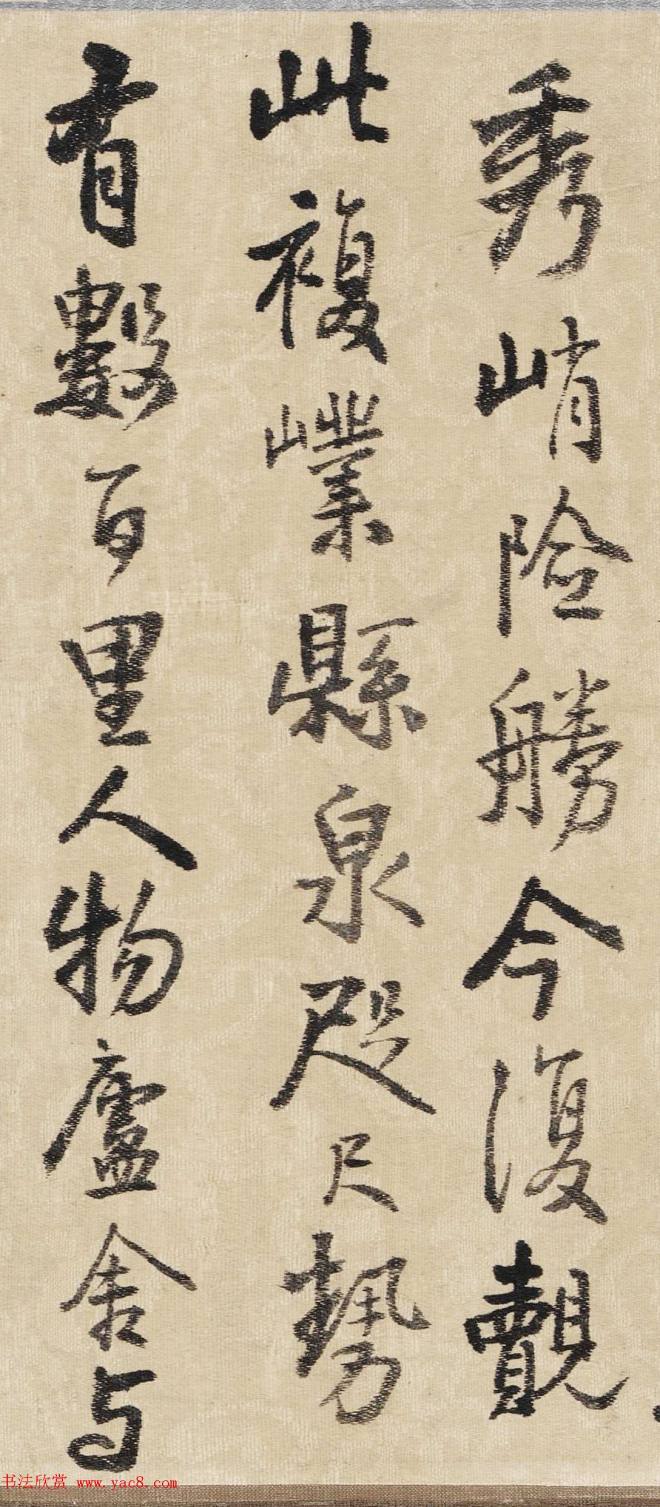 秀峭險勝今復覿
此複嶫縣泉咫尺勢
有數百里人物廬舍与
书法欣赏 www.yac8.com